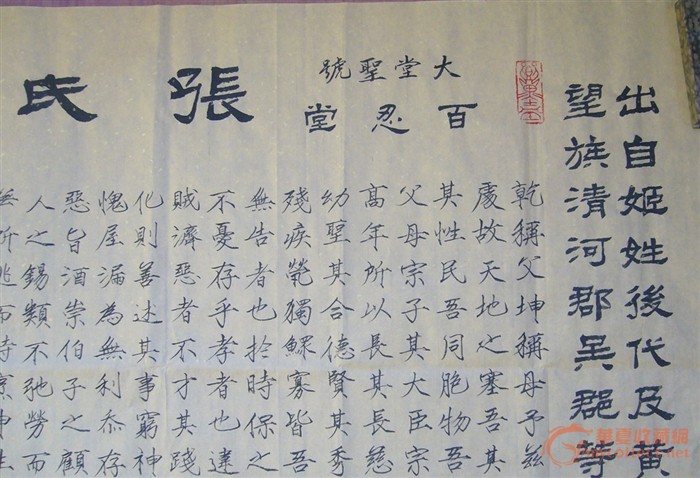 出自姬姓後代及黃
望族清河郡吳郡等
大堂聖號
百忍堂
張氏
乾稱父坤稱母予茲
處故天地之塞吾其
其性民吾同胞物吾
父母宗子其大臣宗
高年所以長其長慈
幼聖其合德賢其秀
殘疾煢獨鰥寡皆吾
無告者也於時保之
不憂存乎孝者也違
賊濟惡者不才其踐
化則善述其事窮神
愧屋漏為無利忝存
惡旨酒崇伯子之顧
人之錫類不弛勞而
無所逃而待烹申生
華夏收藏網